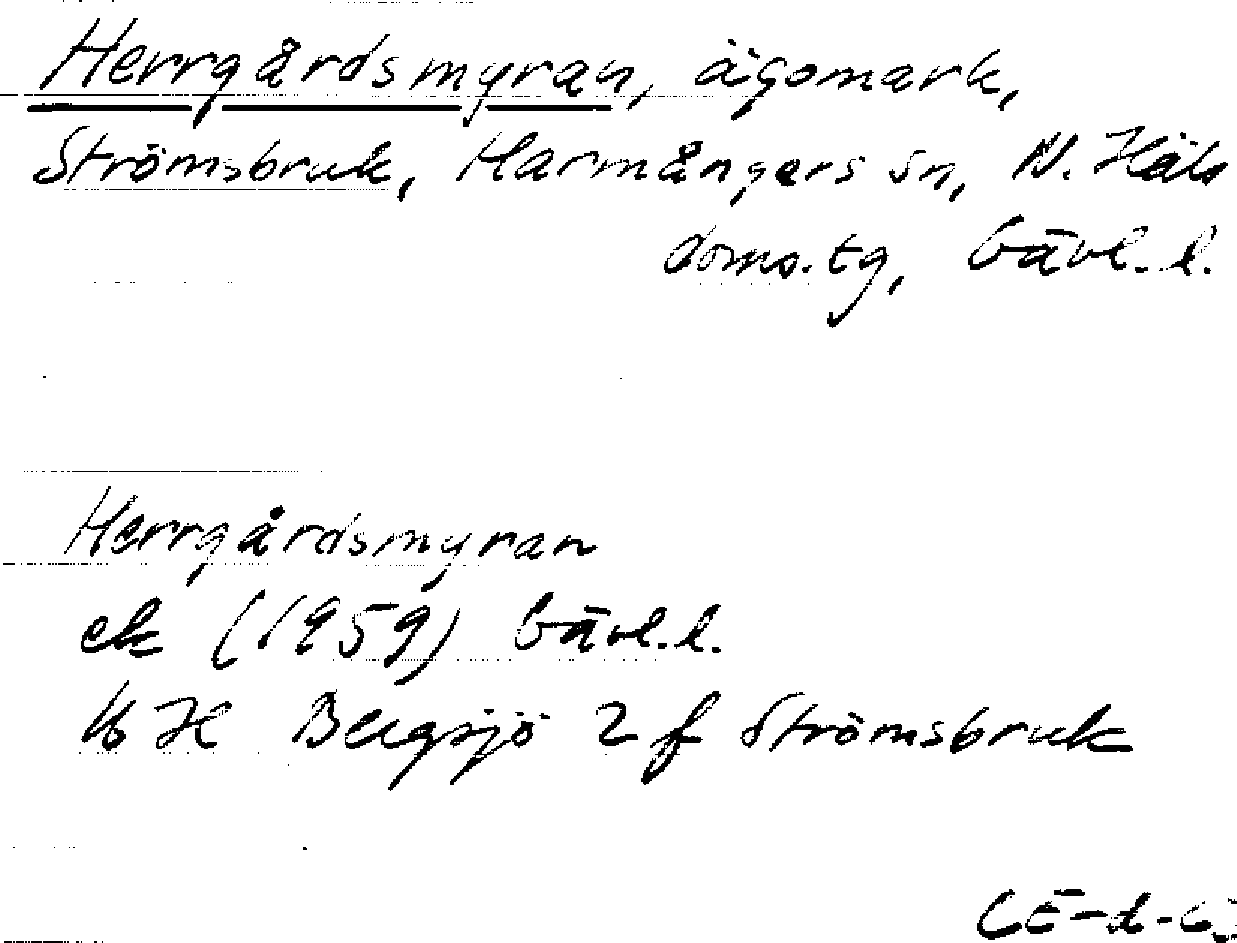 Herrgårdsmyran, ägomark,
Strömsbruk, Harmångers sn, N. Häls
doms. tg, Gävl. l.
Herrgårdsmyran
ek (1959) Gävl. l.
Bergsjö 2 f Strömsbruk